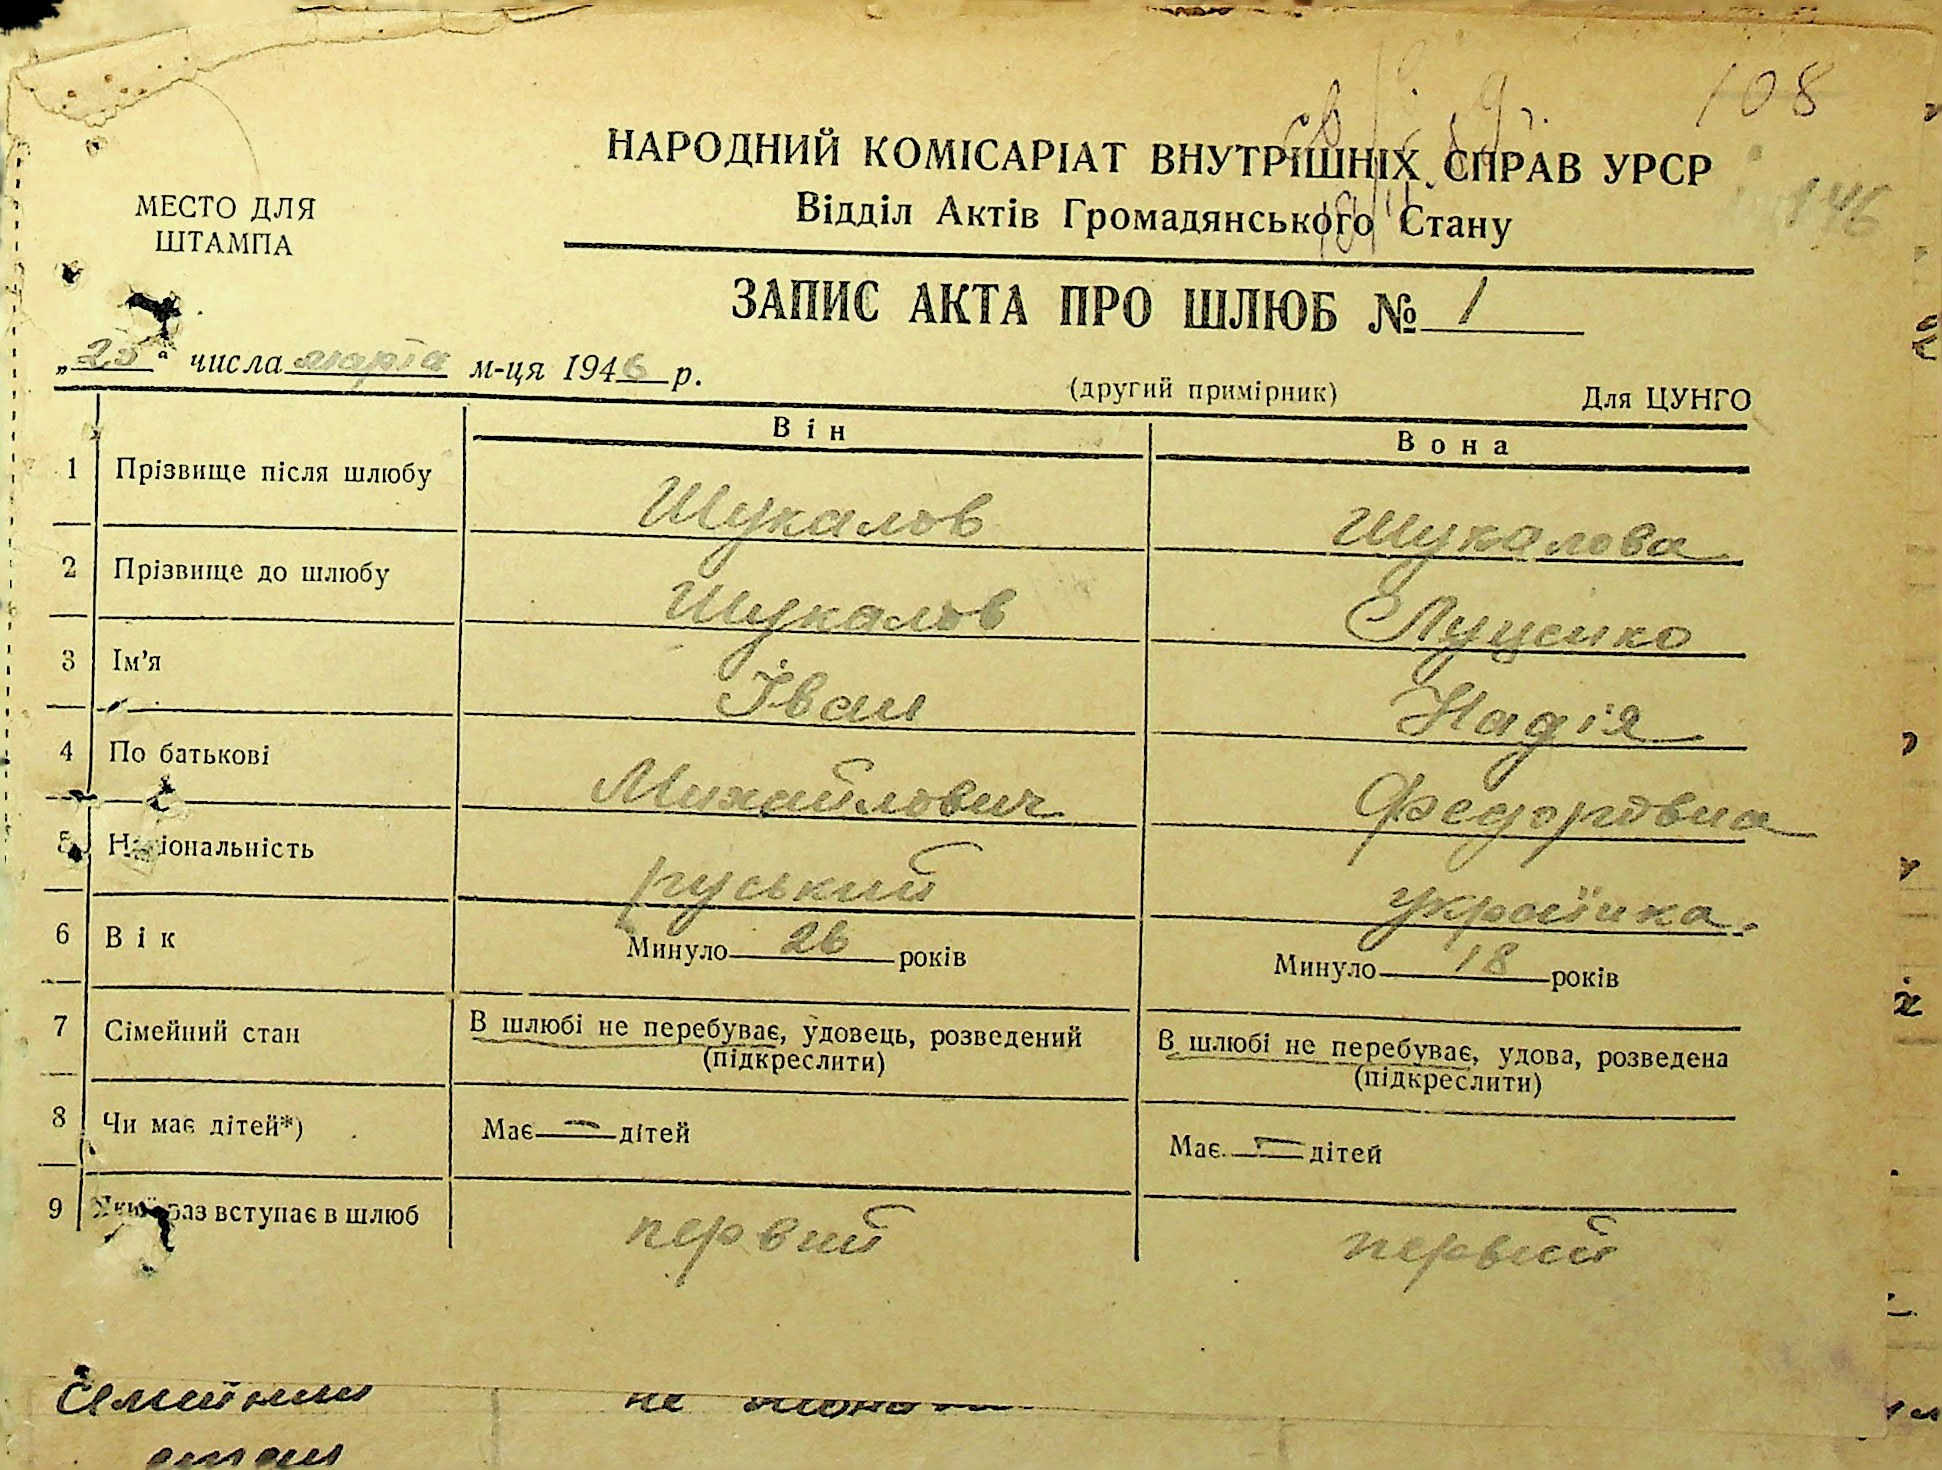 108
146
МЕСТО ДЛЯ
ШТАМПА
НАРОДНИЙ КОМІСАРІАТ ВНУТРІШНІХ СПРАВ УРСР
Відділ Актів Громадянського Стану
ЗАПИС АКТА ПРО ШЛЮБ № 1
„25“ числа марта м-ця 1946 р.
(другий примірник) Для ЦУНГО
Він Вона
1 Прізвище після шлюбу Шукалов Шукалова
2 Прізвище до шлюбу Шукалов Луценко
3 Ім'я Іван Надія
4 По батькові Михайлович Федоровна
5 Національність руський українка.
6 Вік Минуло 26 років Минуло 18 років
7 Сімейний стан В шлюбі не перебуває, удовець, розведений (підкреслити) В шлюбі не перебуває, удова, розведена (підкреслити)
8 Чи має дітей*) Має — дітей Має — дітей
9 Який раз вступає в шлюб первий первий
не